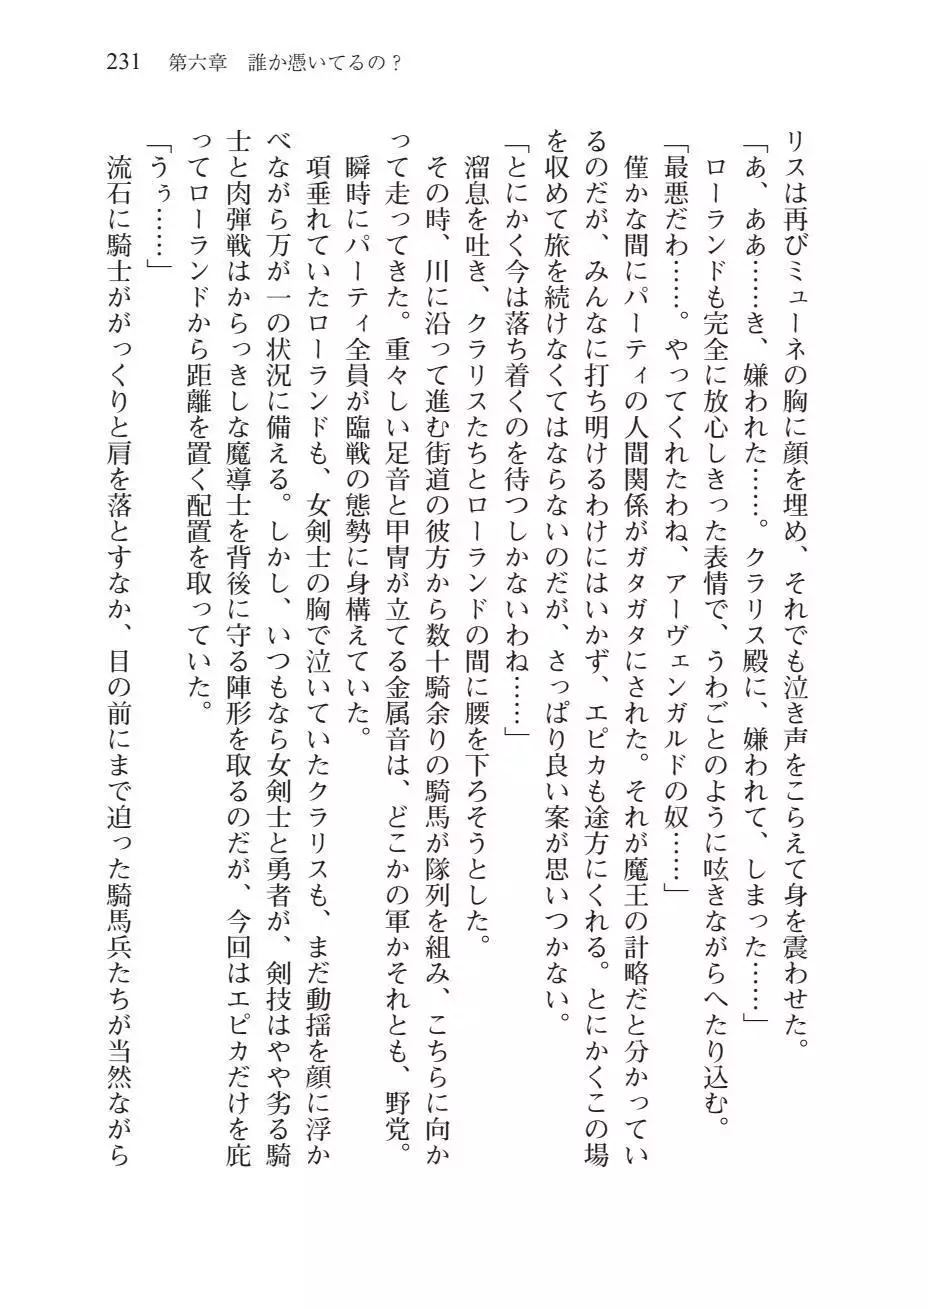 231　第六章　誰か憑いてるの？
リスは再びミューネの胸に顔を埋め、それでも泣き声をこらえて身を震わせた。
「あ、ああ……き、嫌われた……。クラリス殿に、嫌われて、しまった………」
ローランドも完全に放心しきった表情で、うわごとのように呟きながらへたり込む。
「最悪だわ……。やってくれたわね、アーヴェンガルドの奴……」
僅かな間にパーティの人間関係がガタガタにされた。それが魔王の計略だと分かってい
るのだが、みんなに打ち明けるわけにはいかず、エピカも途方にくれる。とにかくこの場
を収めて旅を続けなくてはならないのだが、さっぱり良い案が思いつかない。
「とにかく今は落ち着くのを待つしかないわね……」
溜息を吐き、クラリスたちとローランドの間に腰を下ろそうとした。
その時、川に沿って進む街道の彼方から数十騎余りの騎馬が隊列を組み、こちらに向か
って走ってきた。重々しい足音と甲冑が立てる金属音は、どこかの軍かそれとも、野党。
瞬時にパーティ全員が臨戦の態勢に身構えていた。
項垂れていたローランドも、女剣士の胸で泣いていたクラリスも、まだ動揺を顔に浮か
べながら万が一の状況に備える。しかし、いつもなら女剣士と勇者が、剣技はやや劣る騎
士と肉弾戦はからっきしな魔導士を背後に守る陣形を取るのだが、今回はエピカだけを庇
ってローランドから距離を置く配置を取っていた。
「うぅ……」
流石に騎士ががっくりと肩を落とすなか、目の前にまで迫った騎馬兵たちが当然ながら